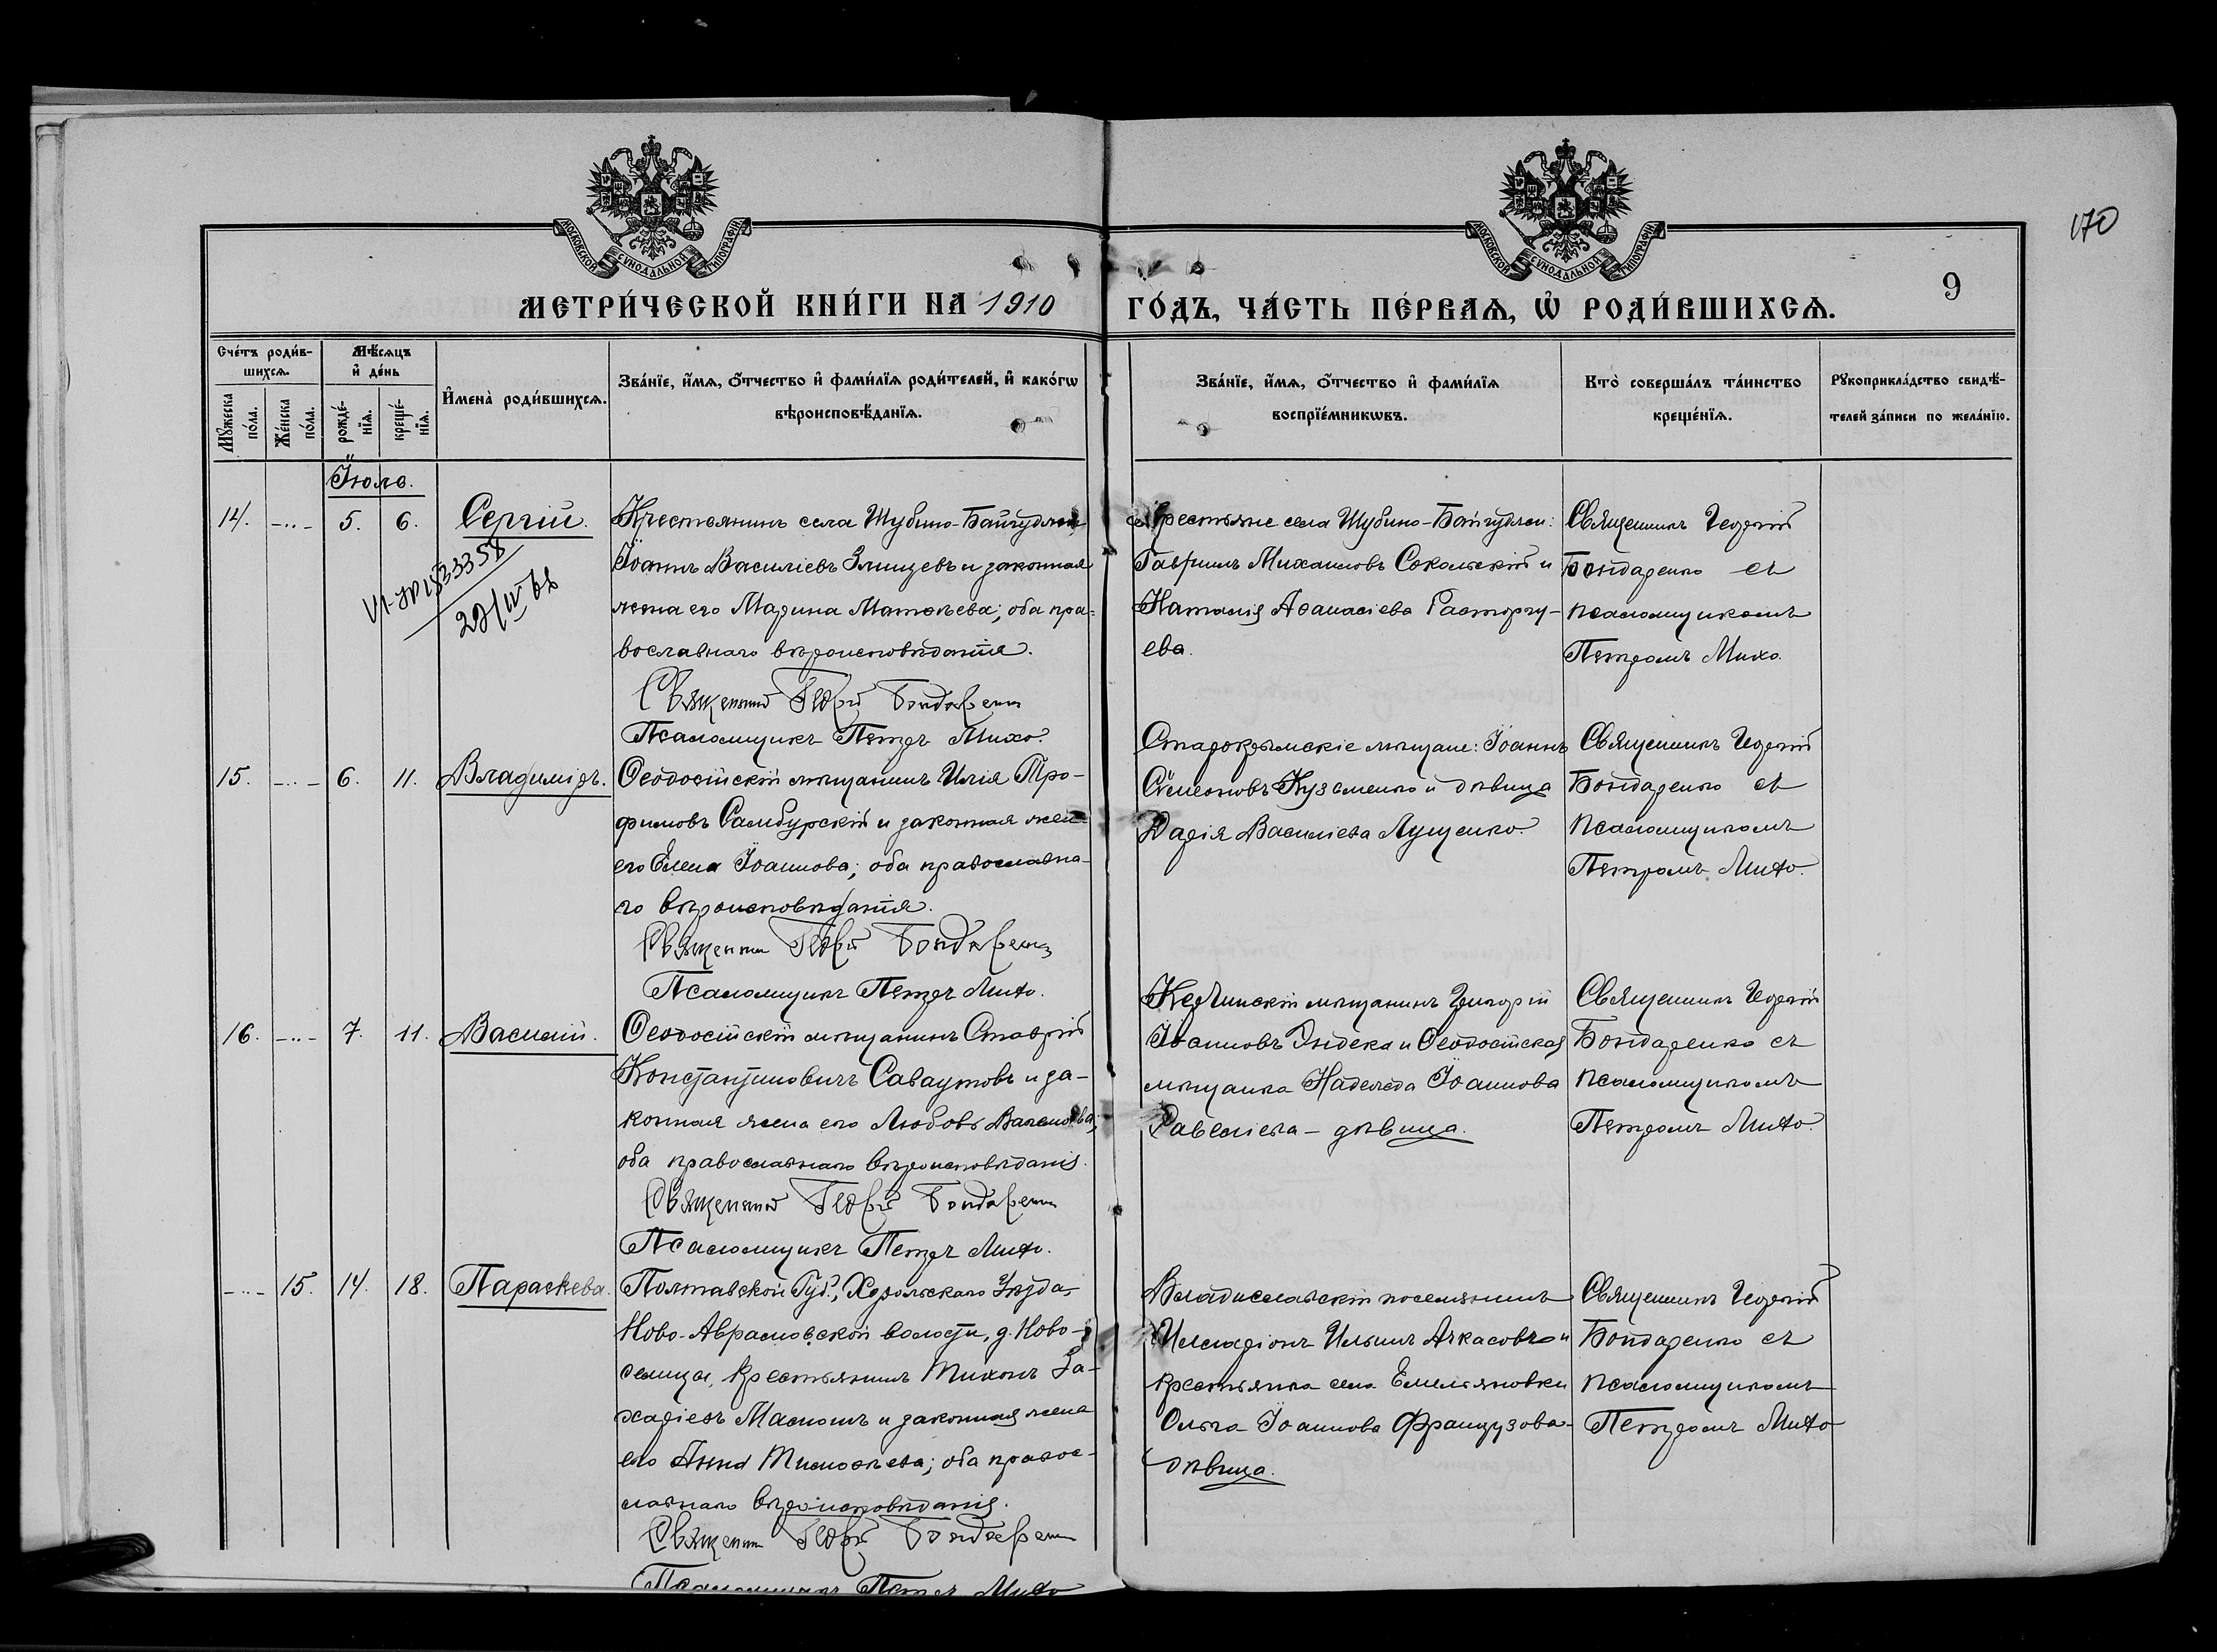 МОСКОВСКОЙ СУНОДАЛЬНОЙ ТИПОГРАФІИ
МОСКОВСКОЙ СУНОДАЛЬНОЙ ТИПОГРАФІИ
170
9
МЕТРИ́ЧЕСКОЙ КНИ́ГИ НА 1910 ГО́ДЪ, ЧА́СТЬ ПЕ́РВАѦ, Ѡ҆ РОДИ́ВШИХСѦ.
Сче́тъ роди́в-
шихсѧ.
Мꙋ́жеска по́ла.
Же́нска по́ла.
Мѣ́сѧцъ
и҆ де́нь
рожде́-
нїѧ.
креще́-
нїѧ.
И҆мена̀ роди́вшихсѧ.
Зва́нїе, и҆́мѧ, ѻ҆́тчество и҆ фами́лїѧ роди́телей, и҆ како́гѡ
вѣроисповѣ́данїѧ.
Зва́нїе, и҆́мѧ, ѻ҆́тчество и҆ фами́лїѧ
воспрїе́мникѡвъ.
Кто̀ соверша́лъ та́инство
креще́нїѧ.
Рꙋкоприкла́дство свидѣ́-
телей за́писи по жела́нїю.
Іюль.
14. -..- 5. 6. Сергій.
Крестьянинъ села Шубино-Байгуджи
Іоаннъ Василіевъ Злищевъ и законная
жена его Марина Матѳѣева; оба пра-
вославнаго вѣроисповѣданія.
Священникъ Георгій Бондаренко
Псаломщикъ Петръ Михо.
Крестьяне села Шубино-Байгуджи:
Гавріилъ Михаиловъ Сокольскій и
Наталія Аѳанасіева Расторгу-
ева.
Священникъ Георгій
Бондаренко съ
псаломщикомъ
Петромъ Михо.
15. -..- 6. 11. Владиміръ.
Ѳеодосійскій мѣщанинъ Илія Тро-
фимовъ Самбурскій и законная жена
его Елена Іоаннова; оба православна-
го вѣроисповѣданія.
Священникъ Георгій Бондаренко
Псаломщикъ Петръ Михо.
Старокрымскіе мѣщане: Іоаннъ
Симеоновъ Кузьменко и дѣвица
Дарія Василіева Лущенко.
Священникъ Георгій
Бондаренко съ
псаломщикомъ
Петромъ Михо.
16. -..- 7. 11. Василій.
Ѳеодосійскій мѣщанинъ Ставрій
Константиновичъ Саваутовъ и за-
конная жена его Любовь
оба православнаго вѣроисповѣданія.
Священникъ Георгій Бондаренко
Псаломщикъ Петръ Михо.
Керчинскій мѣщанинъ Григорій
Іоанновъ и Ѳеодосійская
мѣщанка Надежда Іоаннова
Савеліева - дѣвица.
Священникъ Георгій
Бондаренко съ
псаломщикомъ
Петромъ Михо.
-..- 15. 14. 18. Параскева.
Полтавской Губ., Хорольскаго Уѣзда,
Ново-Аврамовской волости, д. Ново-
селица, крестьянинъ Тихонъ За-
харіевъ и законная жена
его Анна Тимоѳѣева; оба правос-
лавнаго вѣроисповѣданія.
Священникъ Георгій Бондаренко
Псаломщикъ Петръ Михо
Владиславскій поселянинъ
Иларіонъ Ильинъ Ачкасовъ и
крестьянка села Емельяновки
Ольга Іоаннова Французова-
дѣвица.
Священникъ Георгій
Бондаренко съ
псаломщикомъ
Петромъ Михо